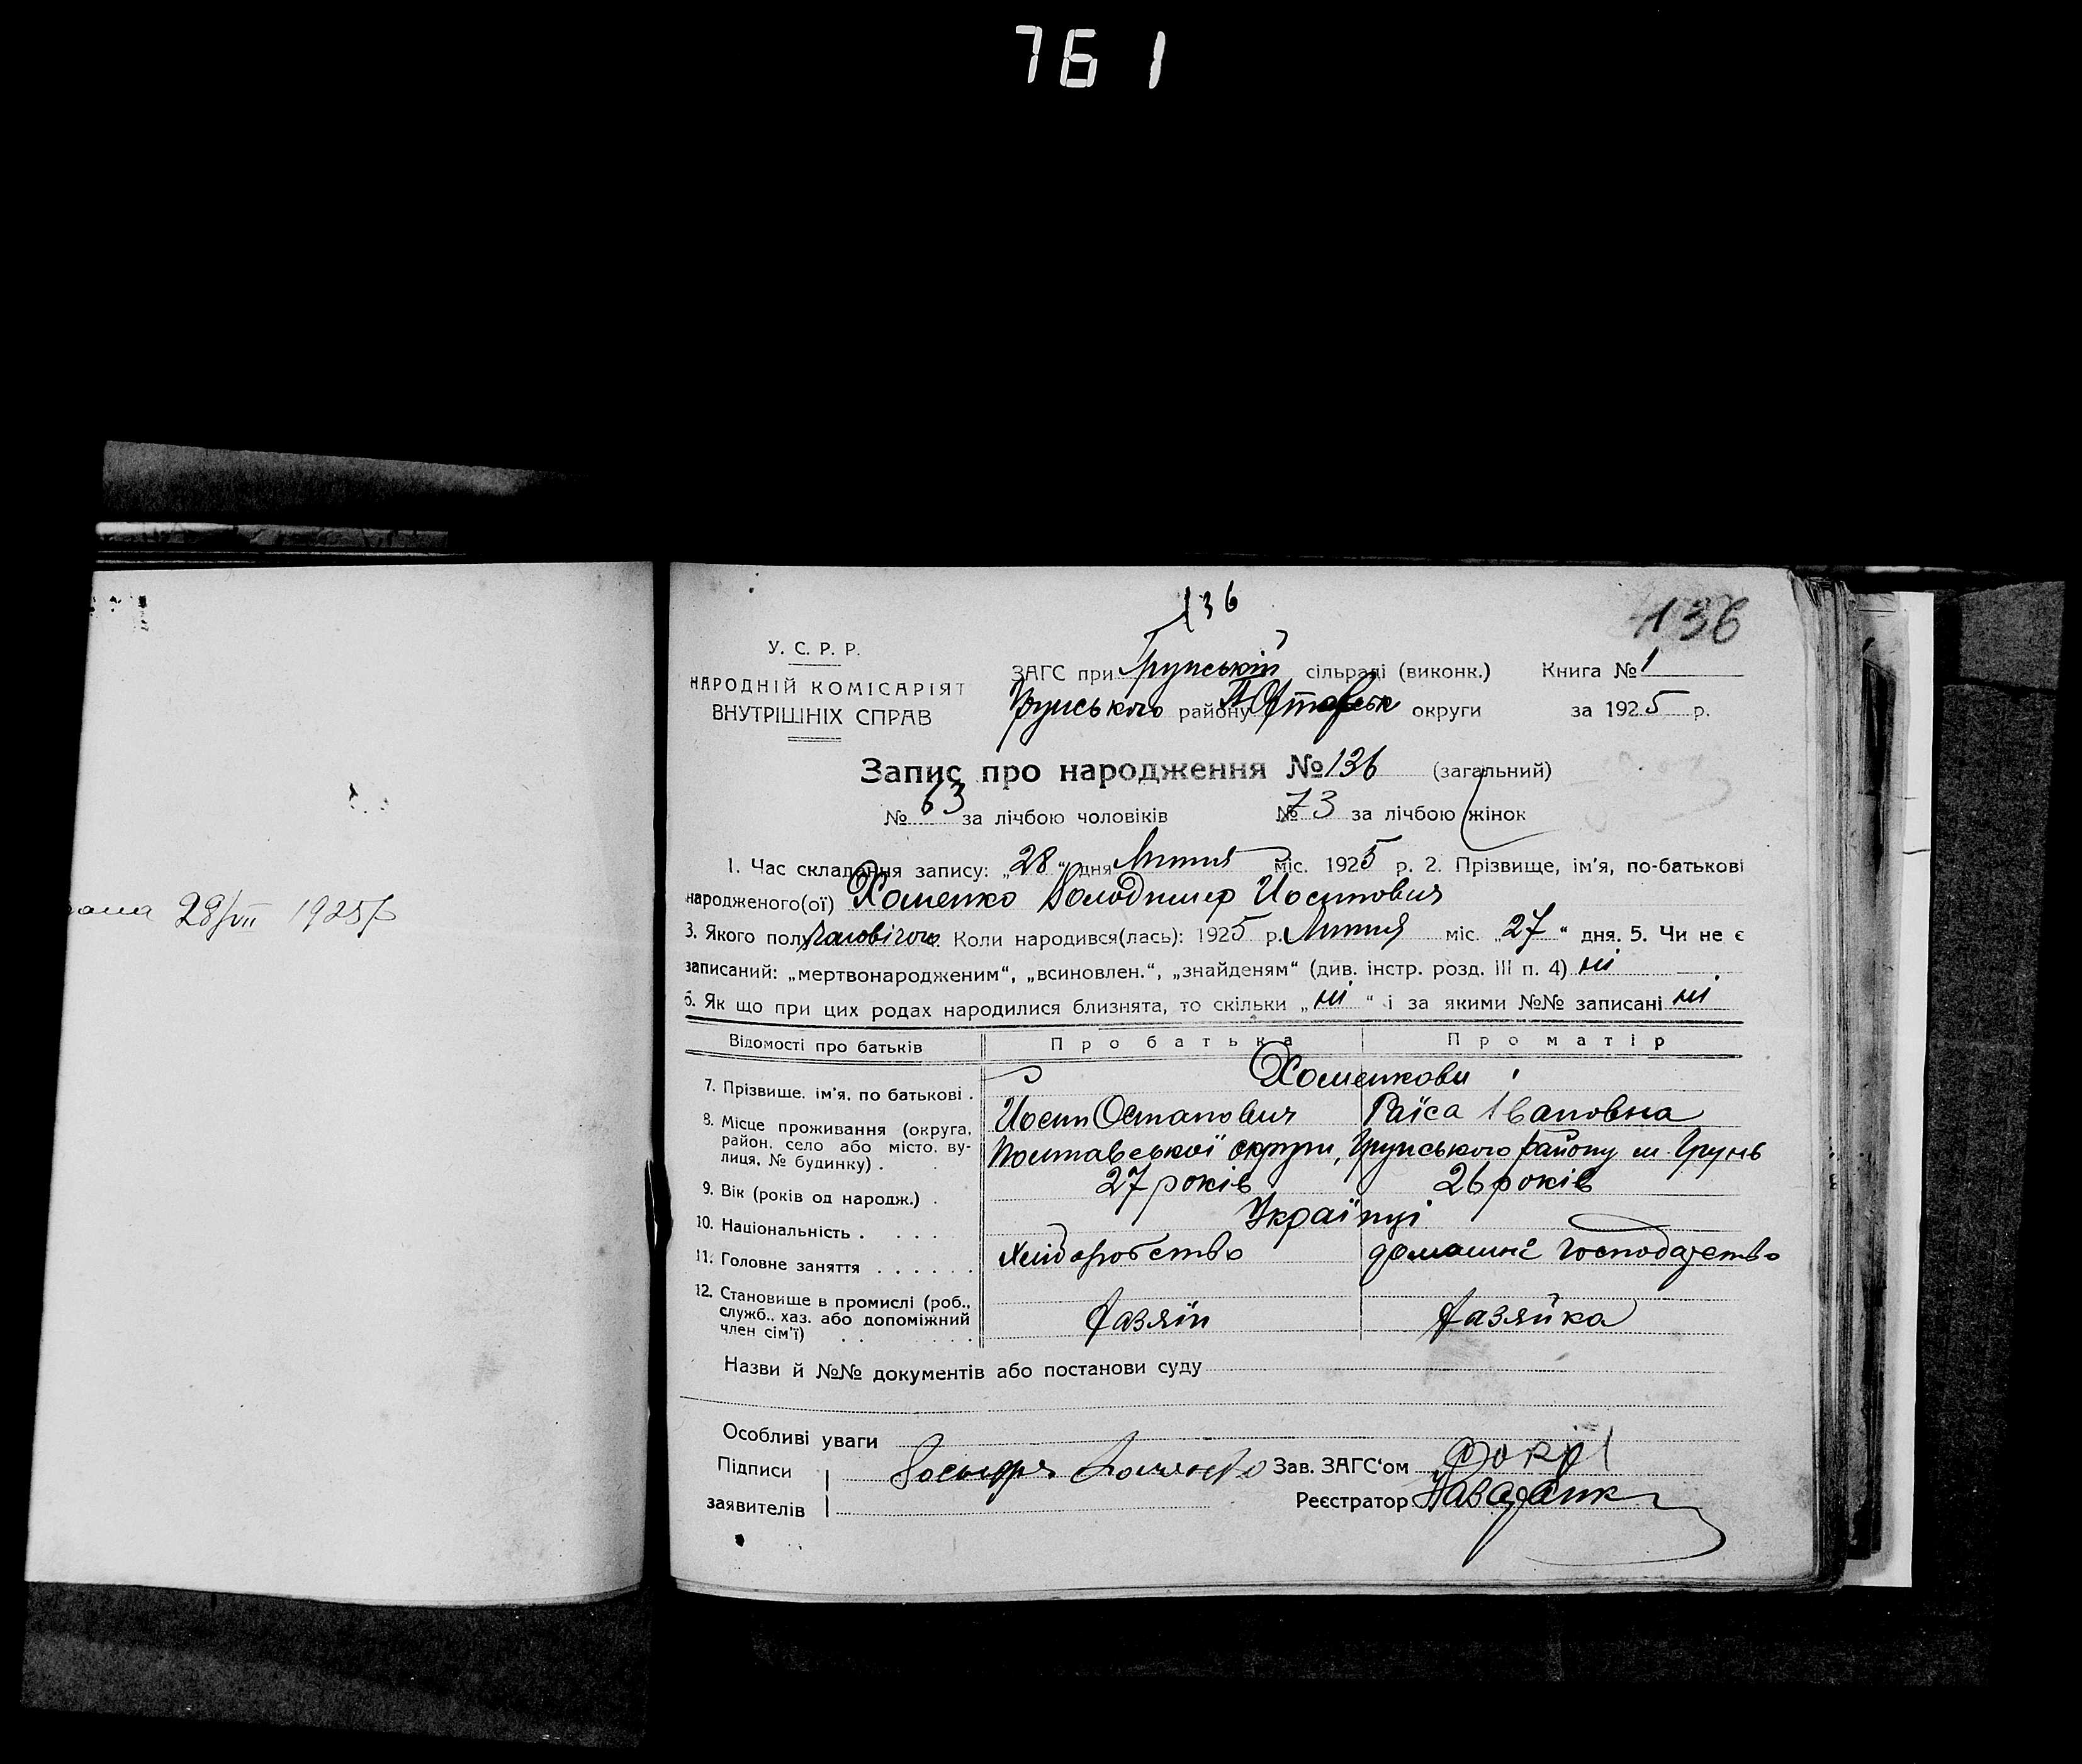 761
136
136
У. С. Р. Р.
НАРОДНІЙ КОМІСАРІЯТ
ВНУТРІШНІХ СПРАВ
ЗАГС при Грунській сільраді (виконк.) Книга № 1
Грунського району Полтавськ округи за 1925 р.
Запис про народження № 136 (загальний)
№ 63 за лічбою чоловіків № 73 за лічбою жінок
28/VII 1925 р
1. Час складання запису: „28“ дня Липня міс. 1925 р. 2. Прізвище, ім'я, по-батькові
народженого(ої) Хоменко Володимир Иосипович
3. Якого полу Чоловічого. Коли народився(лась): 1925 р. Липня міс. „27“ дня. 5. Чи не є
записаний: „мертвонародженим“, „всиновлен.“, „знайденям“ (див. інстр. розд. III п. 4) ні
6. Як що при цих родах народилися близнята, то скільки „ні“ і за якими №№ записані ні
Відомості про батьків Про батька Про матір
7. Прізвище. ім'я, по батькові . Хоменкови
Иосип Остапович Раїса Івановна
8. Місце проживання (округа, район, село або місто, ву-
лиця, № будинку) . Полтавської округи, Грунського району м. Грунь
9. Вік (років од народж.) . 27 років 26 років
10. Національність . . . . Українці
11. Головне заняття . . . . . . Хліборобство домашнє господарство
12. Становище в промислі (роб.,
служб., хаз. або допоміжний
член сім'ї) . . . . Хазяїн Хазяйка
Назви й №№ документів або постанови суду
Особливі уваги
Підписи Хоменко Зав. ЗАГС'ом
заявителів Реєстратор